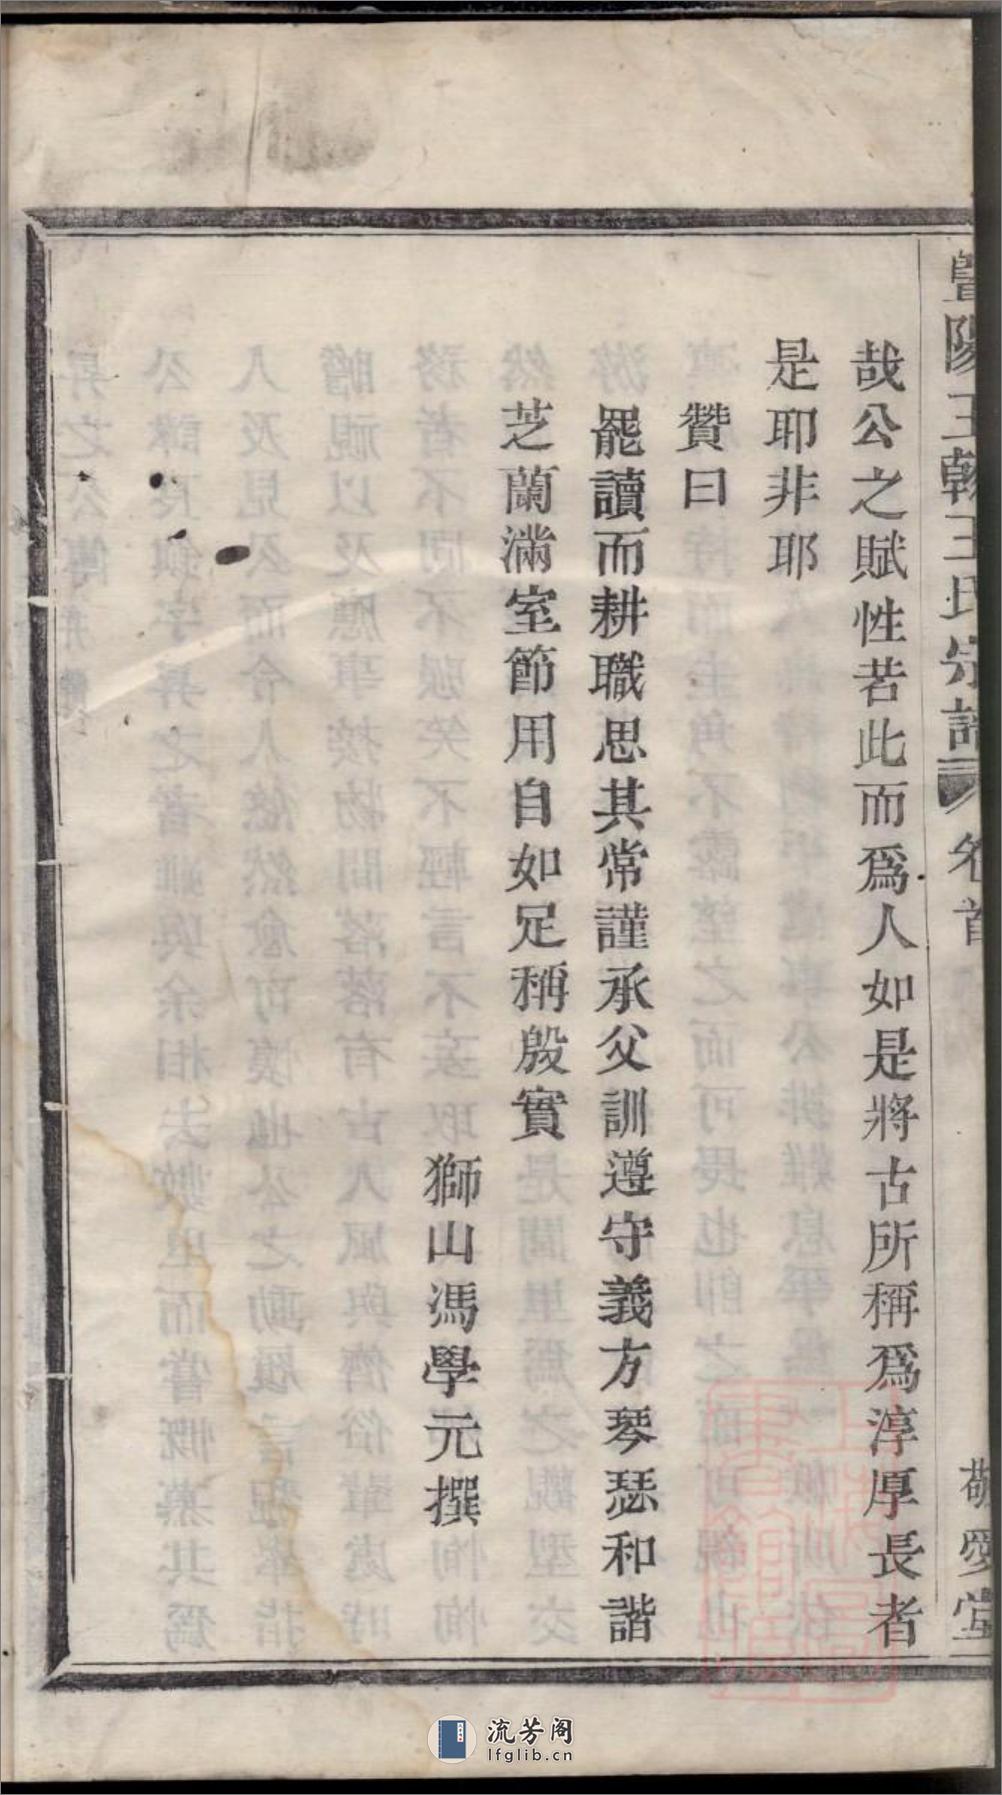 暨陽王韓王氏宗譜 卷首 敬愛堂
哉公之賦性若此而爲人如是將古所稱爲淳厚長者
是耶非耶
贊曰
罷讀而耕職思其常謹承父訓遵守義方琴瑟和諧
芝蘭滿室節用自如足稱殷實
獅山馮學元撰
流芳阁
lfglib.cn